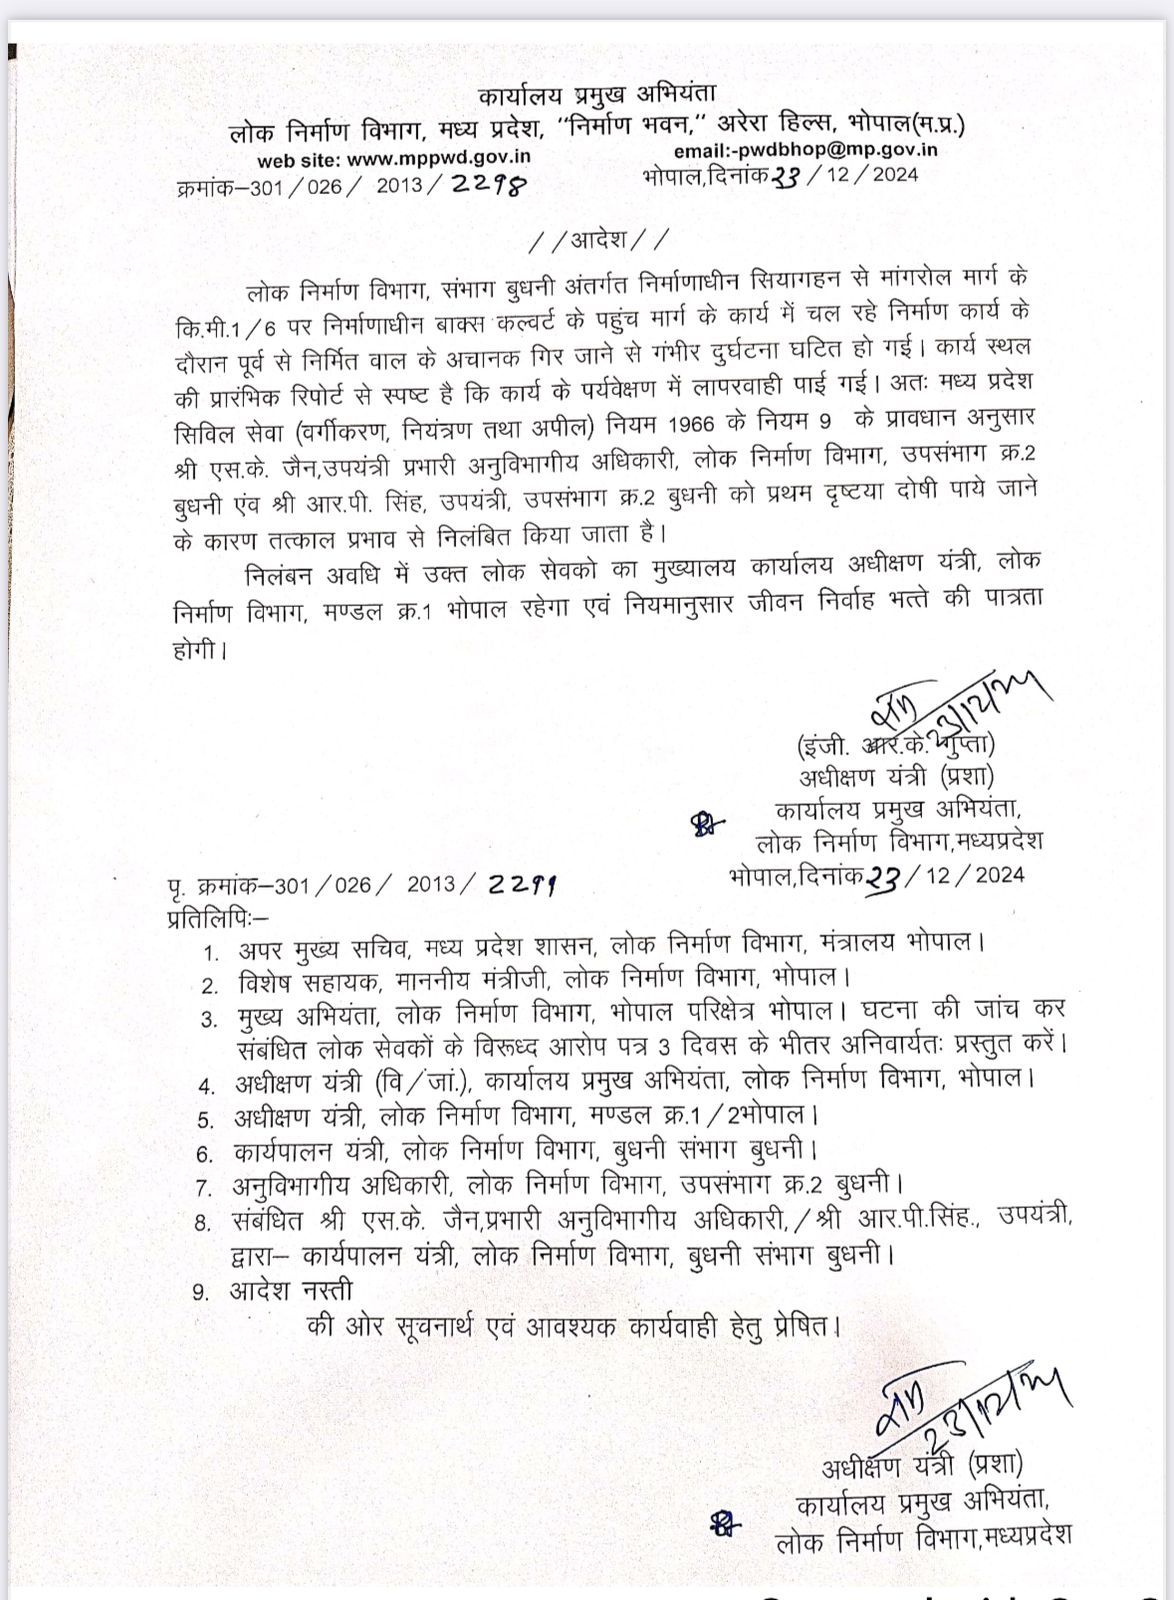 कार्यालय प्रमुख अभियंता
लोक निर्माण विभाग, मध्य प्रदेश, "निर्माण भवन," अरेरा हिल्स, भोपाल(म.प्र.)
web site: www.mppwd.gov.in email:-pwdbhop@mp.gov.in
क्रमांक–301/026/ 2013/2298 भोपाल,दिनांक 23/12/2024
//आदेश//
लोक निर्माण विभाग, संभाग बुधनी अंतर्गत निर्माणाधीन सियागहन से मांगरोल मार्ग के
कि.मी.1/6 पर निर्माणाधीन बाक्स कल्वर्ट के पहुंच मार्ग के कार्य में चल रहे निर्माण कार्य के
दौरान पूर्व से निर्मित वाल के अचानक गिर जाने से गंभीर दुर्घटना घटित हो गई। कार्य स्थल
की प्रारंभिक रिपोर्ट से स्पष्ट है कि कार्य के पर्यवेक्षण में लापरवाही पाई गई। अतः मध्य प्रदेश
सिविल सेवा (वर्गीकरण, नियंत्रण तथा अपील) नियम 1966 के नियम 9 के प्रावधान अनुसार
श्री एस.के. जैन,उपयंत्री प्रभारी अनुविभागीय अधिकारी, लोक निर्माण विभाग, उपसंभाग क्र.2
बुधनी एंव श्री आर.पी. सिंह, उपयंत्री, उपसंभाग क्र.2 बुधनी को प्रथम दृष्टया दोषी पाये जाने
के कारण तत्काल प्रभाव से निलंबित किया जाता है।
निलंबन अवधि में उक्त लोक सेवको का मुख्यालय कार्यालय अधीक्षण यंत्री, लोक
निर्माण विभाग, मण्डल क्र.1 भोपाल रहेगा एवं नियमानुसार जीवन निर्वाह भत्ते की पात्रता
होगी।
23/12/24
(इंजी. आर.के. गुप्ता)
अधीक्षण यंत्री (प्रशा)
कार्यालय प्रमुख अभियंता,
लोक निर्माण विभाग,मध्यप्रदेश
पृ. क्रमांक–301/026/ 2013/2299 भोपाल,दिनांक 23/12/2024
प्रतिलिपिः–
1. अपर मुख्य सचिव, मध्य प्रदेश शासन, लोक निर्माण विभाग, मंत्रालय भोपाल।
2. विशेष सहायक, माननीय मंत्रीजी, लोक निर्माण विभाग, भोपाल।
3. मुख्य अभियंता, लोक निर्माण विभाग, भोपाल परिक्षेत्र भोपाल। घटना की जांच कर
संबंधित लोक सेवकों के विरूध्द आरोप पत्र 3 दिवस के भीतर अनिवार्यतः प्रस्तुत करें।
4. अधीक्षण यंत्री (वि/जां.), कार्यालय प्रमुख अभियंता, लोक निर्माण विभाग, भोपाल।
5. अधीक्षण यंत्री, लोक निर्माण विभाग, मण्डल क्र.1/2भोपाल।
6. कार्यपालन यंत्री, लोक निर्माण विभाग, बुधनी संभाग बुधनी।
7. अनुविभागीय अधिकारी, लोक निर्माण विभाग, उपसंभाग क्र.2 बुधनी।
8. संबंधित श्री एस.के. जैन,प्रभारी अनुविभागीय अधिकारी,/श्री आर.पी.सिंह., उपयंत्री,
द्वारा– कार्यपालन यंत्री, लोक निर्माण विभाग, बुधनी संभाग बुधनी।
9. आदेश नस्ती
की ओर सूचनार्थ एवं आवश्यक कार्यवाही हेतु प्रेषित।
23/12/24
अधीक्षण यंत्री (प्रशा)
कार्यालय प्रमुख अभियंता,
लोक निर्माण विभाग,मध्यप्रदेश